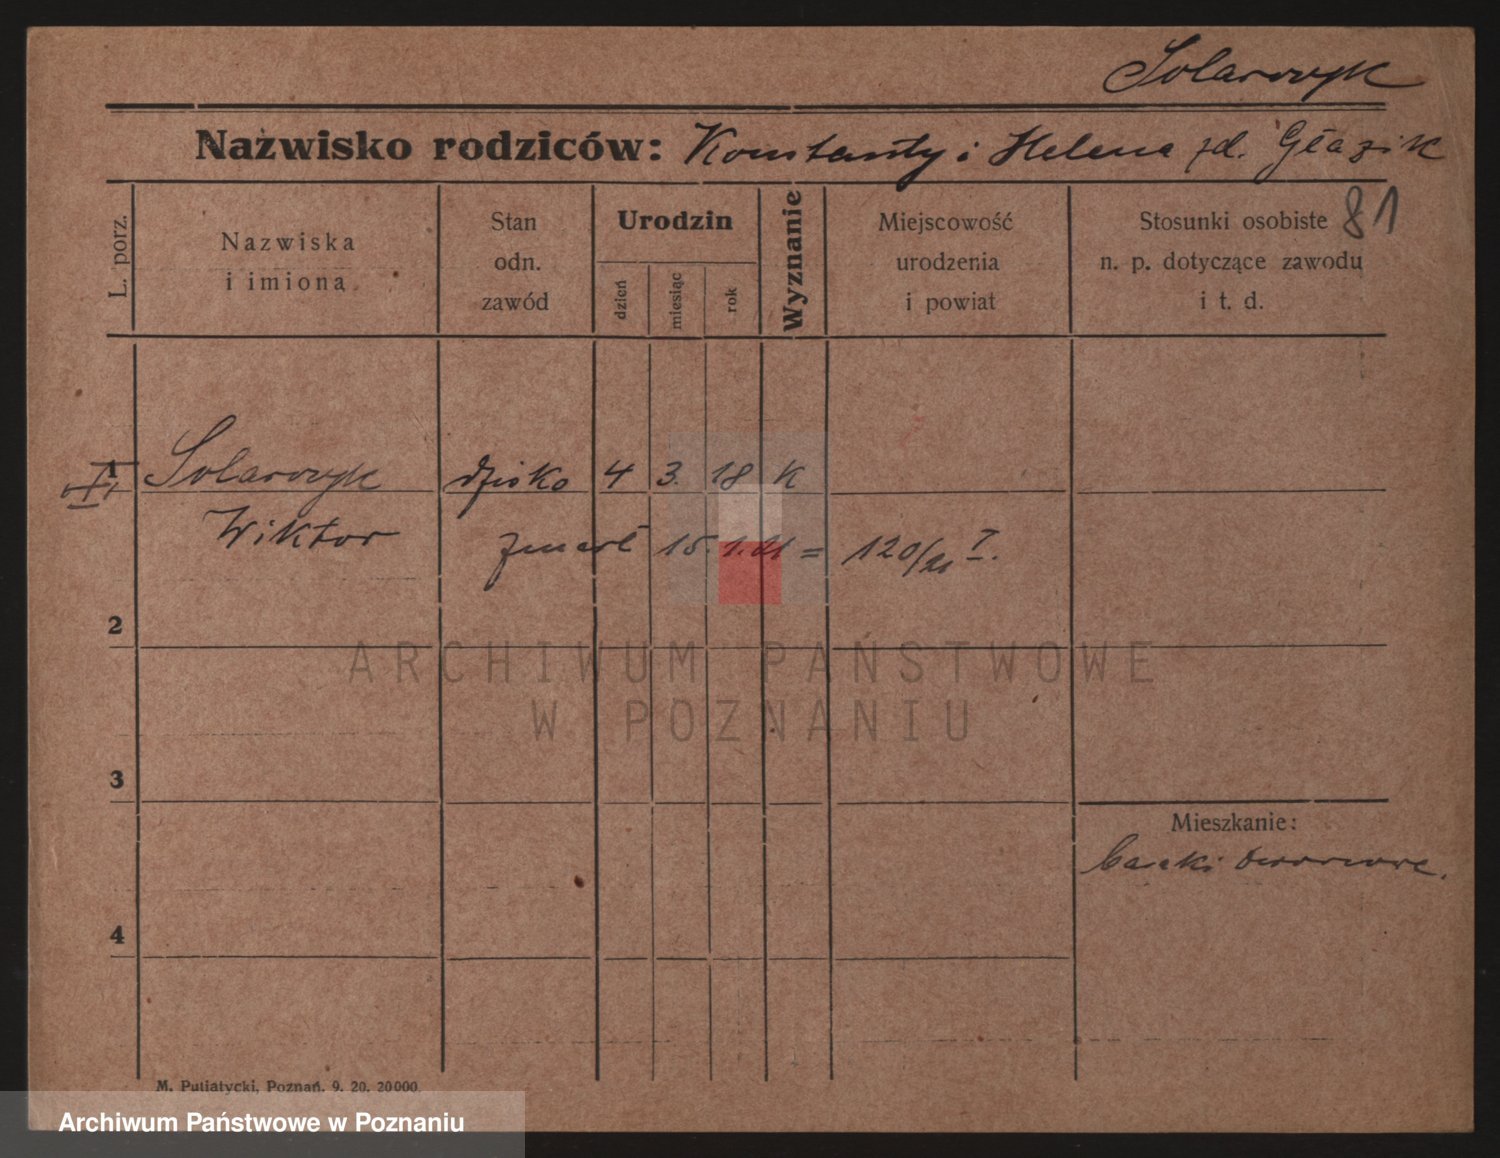 Solarczyk
Nazwisko rodziców: Konstanty i Helena zd. Głazik
81
L. porz.
Nazwiska
i imiona
Stan
odn.
zawód
Urodzin
dzień
miesiąc
rok
Wyznanie
Miejscowość
urodzenia
i powiat
Stosunki osobiste
n. p. dotyczące zawodu
i t. d.
1 Solarczyk dzicko 4 3. 18 K
Wiktor zmarł 15. 1. 21 = 120/21 I.
2
ARCHIWUM PAŃSTWOWE
W POZNANIU
3
Mieszkanie:
baraki
4
M. Putiatycki, Poznań. 9. 20. 20000.
Archiwum Państwowe w Poznaniu